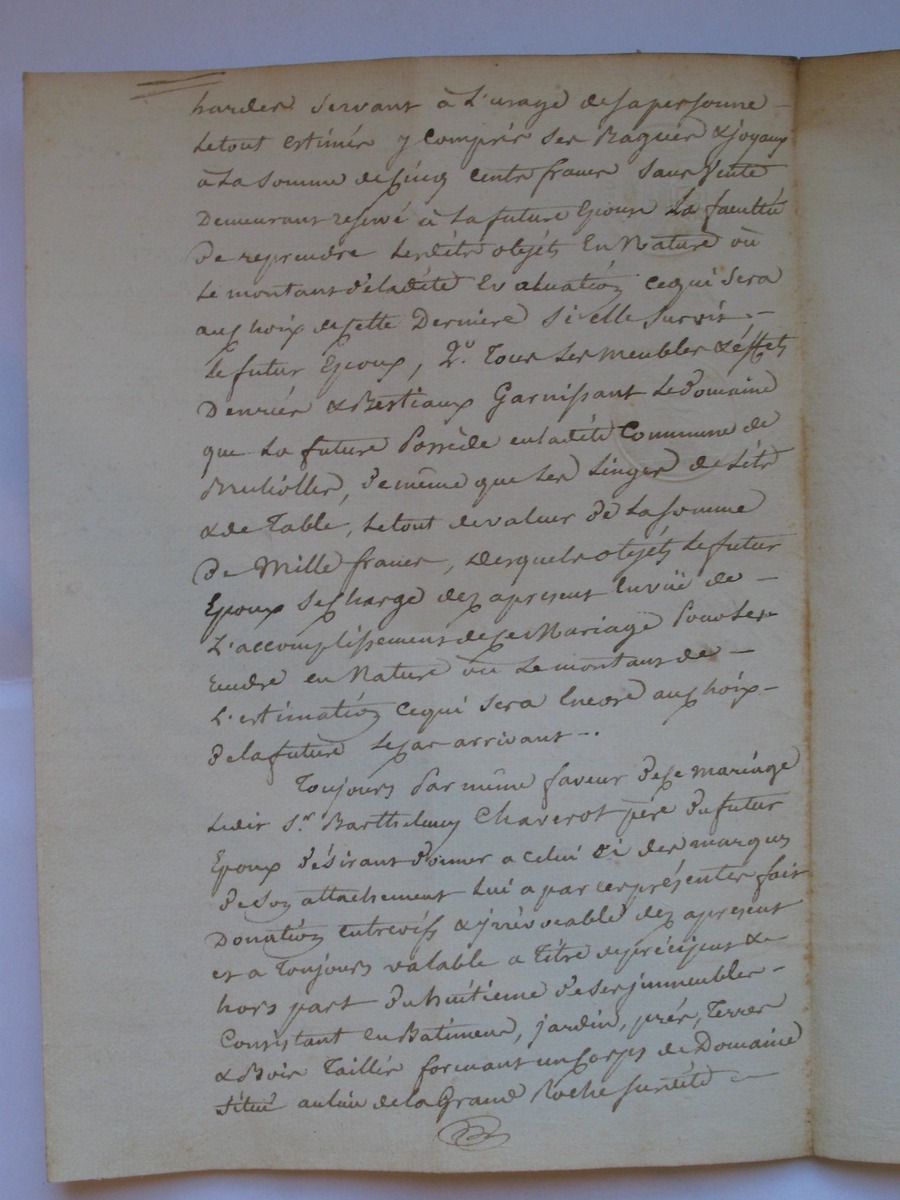 hardes servant à L'usage de sa personne –
Le tout estimés y compris ses Bagues & joyaux
à La somme de Cinq Cents francs sans Vente
Demeurant reservé à La future Epouse La faculté
De reprendre Lesdits objets En Nature où
Le montant De ladite Evaluation ce qui sera
au choix de cette Derniere si elle survit –
Le futur Epoux, 2.º Tous Les meubles & effets
Denrées & Bestiaux Garnissant Le Domaine
que La future Possède en ladite Commune de
De même que Les Linges de Lits
& de Table, Le tout de valeur De La somme
De Mille francs, desquels objets Le futur
Epoux se charge dez apresent En vüe de –
L'accomplissement de ce Mariage Pour Les
Rendre en Nature où Le montant de –
L'estimation ce qui sera Encore au choix –
De la future Le cas arrivant –.
Toujours Par même faveur De ce mariage
Ledit S.r Barthelemy Chaverot père Du futur
Epoux Désirant Donner a celui ci des marques
De son attachement Lui a par ces présentes fait
Donation entrevifs & irrévocable dez apresent
et a Toujours valable a Titre de préciput &
hors part Du huitieme De ses immeubles –
Consistant En Batiments, jardin, prés, Terres
& Bois Taillis formant un Corps de Domaine
situé au lieu de la Grand Roche susdite –